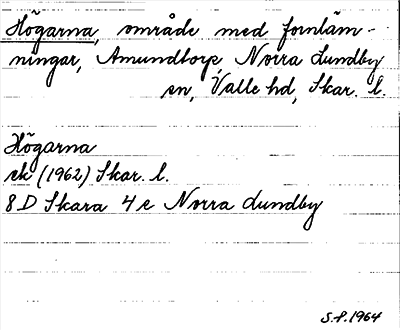 Högarna, område med fornläm-
ningar, Amundtorp, Norra Lundby
sn, Valle hd, Skar. l.
Högarna
ek (1962) Skar. l.
8 D Skara 4 e Norra Lundby
S.P. 1964